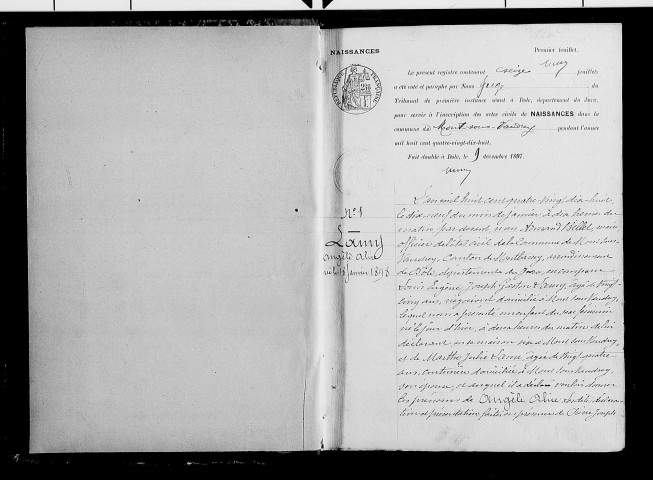 NAISSANCES
Premier feuillet.
Le présent registre contenant seize feuillets
a été coté et paraphé par Nous Juge du
Tribunal de première instance séant à Dole, département du Jura,
pour servir à l'inscription des actes civils de NAISSANCES dans la
commune de Mont-sous-Vaudrey pendant l'année
mil huit cent quatre-vingt-dix-huit.
Fait double à Dole, le 9 décembre 1897.
N° 1
Lamy
Angèle Aline
née le 18 Janvier 1898
L'an mil huit cent quatre vingt dix huit,
le dix neuf du mois de Janvier à dix heures du
matin par devant nous Armand Billet, maire
officier de l'état civil de la Commune de Mont sous
Vaudrey, Canton de Montbarrey, arrondissement
de Dole, département du Jura, est comparu
Louis Eugène Joseph Gaston Lamy, âgé de vingt
cinq ans, négociant domicilié à Mont sous Vaudrey,
lequel nous a présenté un enfant du sexe féminin
né le jour d'hier, à deux heures du matin de lui
déclarant, en sa maison sise à Mont sous Vaudrey,
et de Marthe Julie, âgée de vingt quatre
ans, couturière domiciliée à Mont sous Vaudrey,
son épouse, et auquel il a déclaré vouloir donner
les prénoms de Angèle Aline. Les dites déclara-
tion et présentation faites en présence de Joseph